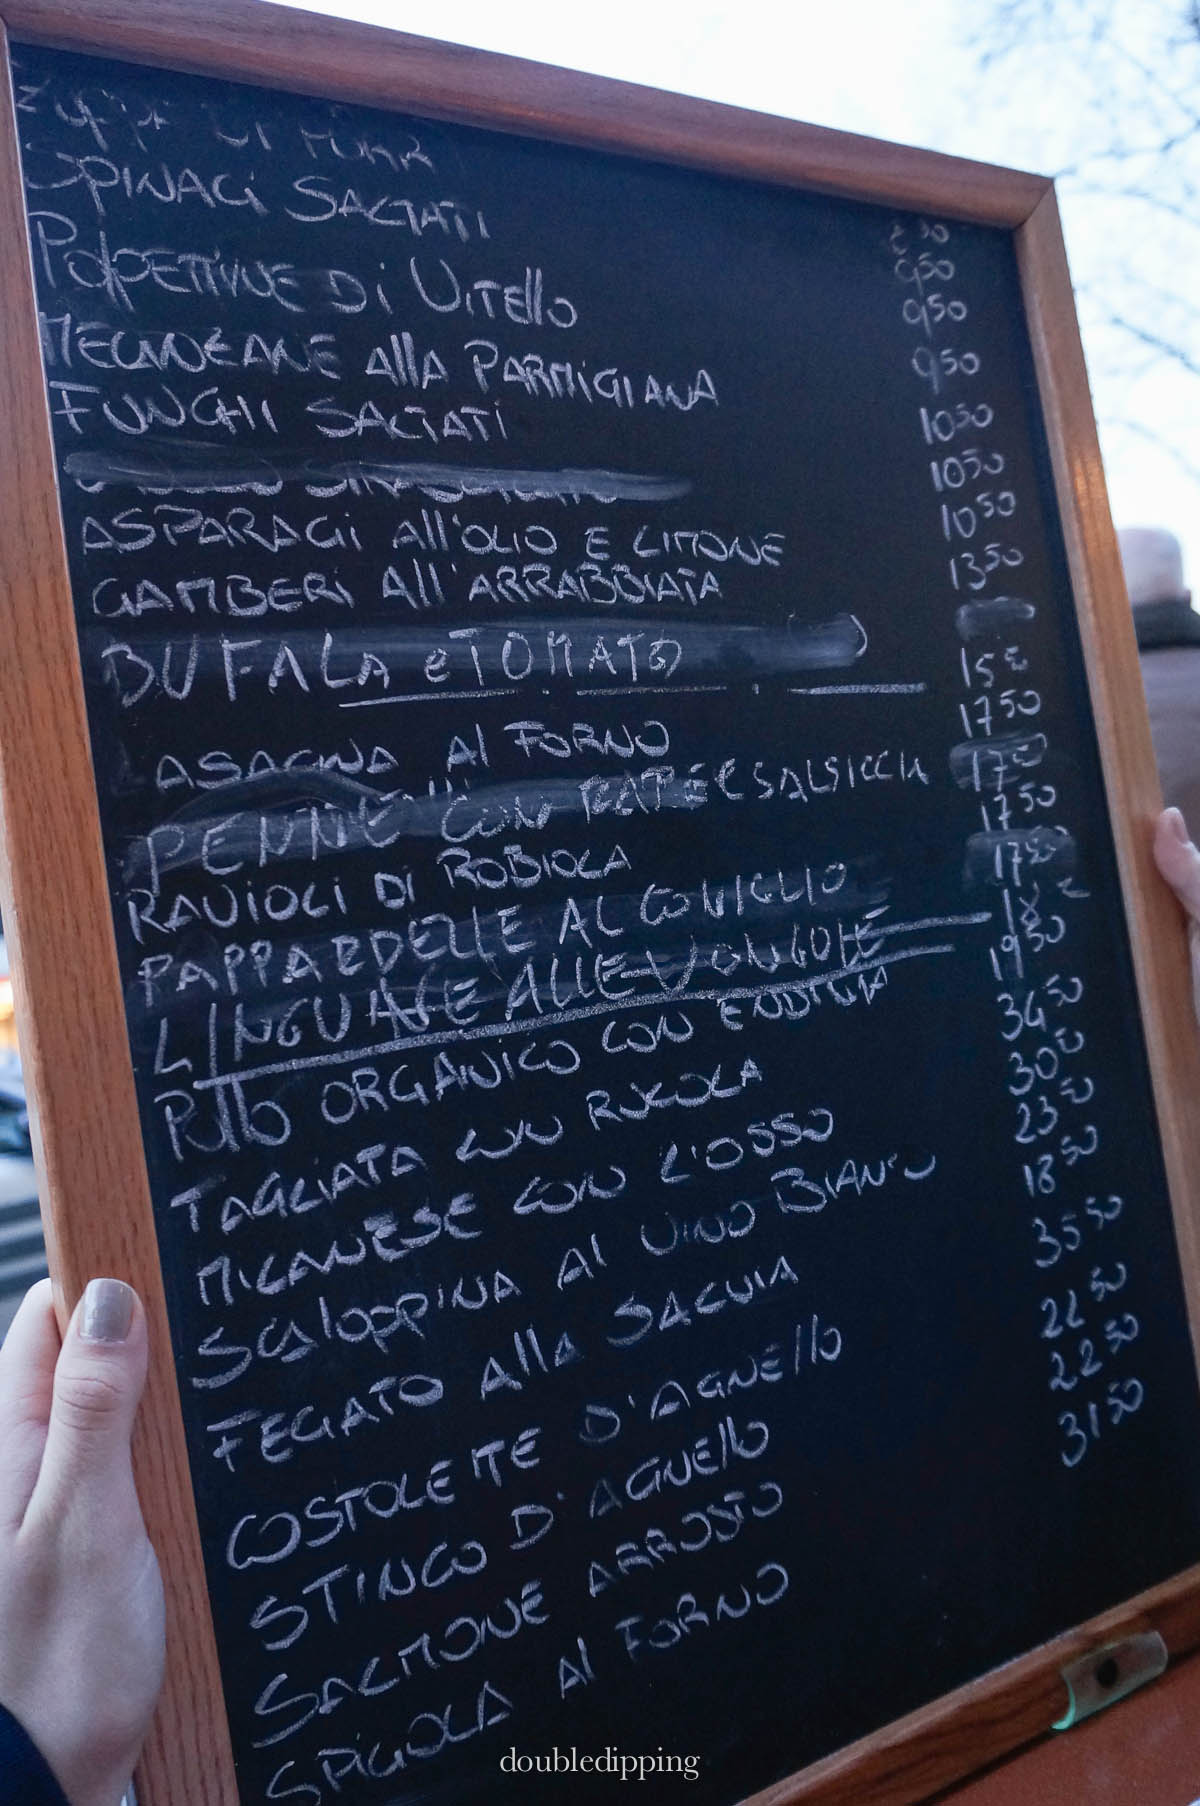 SPINACI SALTATI
POLPETTINE Di VITEllO
MELANZANE AllA PARMIGIANA
FUNGHI SALTATI
ASPARAGI All'OLIO E LIMONE
GAMBERi All'ARRABBIATA
BUFALA e TOMATO
ASAGNA Al FORNO
PENNE CON RAPE E SALSICCIA
RAVIOLI DI ROBIOLA
PAPPARDELLE AL CONIGLIO
LINGUAGE ALLE VONGOLE
POLLO ORGANICO CON ENDIVIA
TAGLIATA CON RUCOLA
MILANESE CON L'OSSO
SCALOPPINA Al VINO BIANCO
FEGATO AllA SALVIA
COSTOLETTE D'AGNEllO
STINCO D'AGNEllO
SALMONE ARROSTO
SPIGOLA Al FORNO
950
950
950
1050
1050
1050
1350
15
1750
17
1750
1750
18
1950
3450
3050
2350
1850
3550
2250
2250
3150
doubledipping